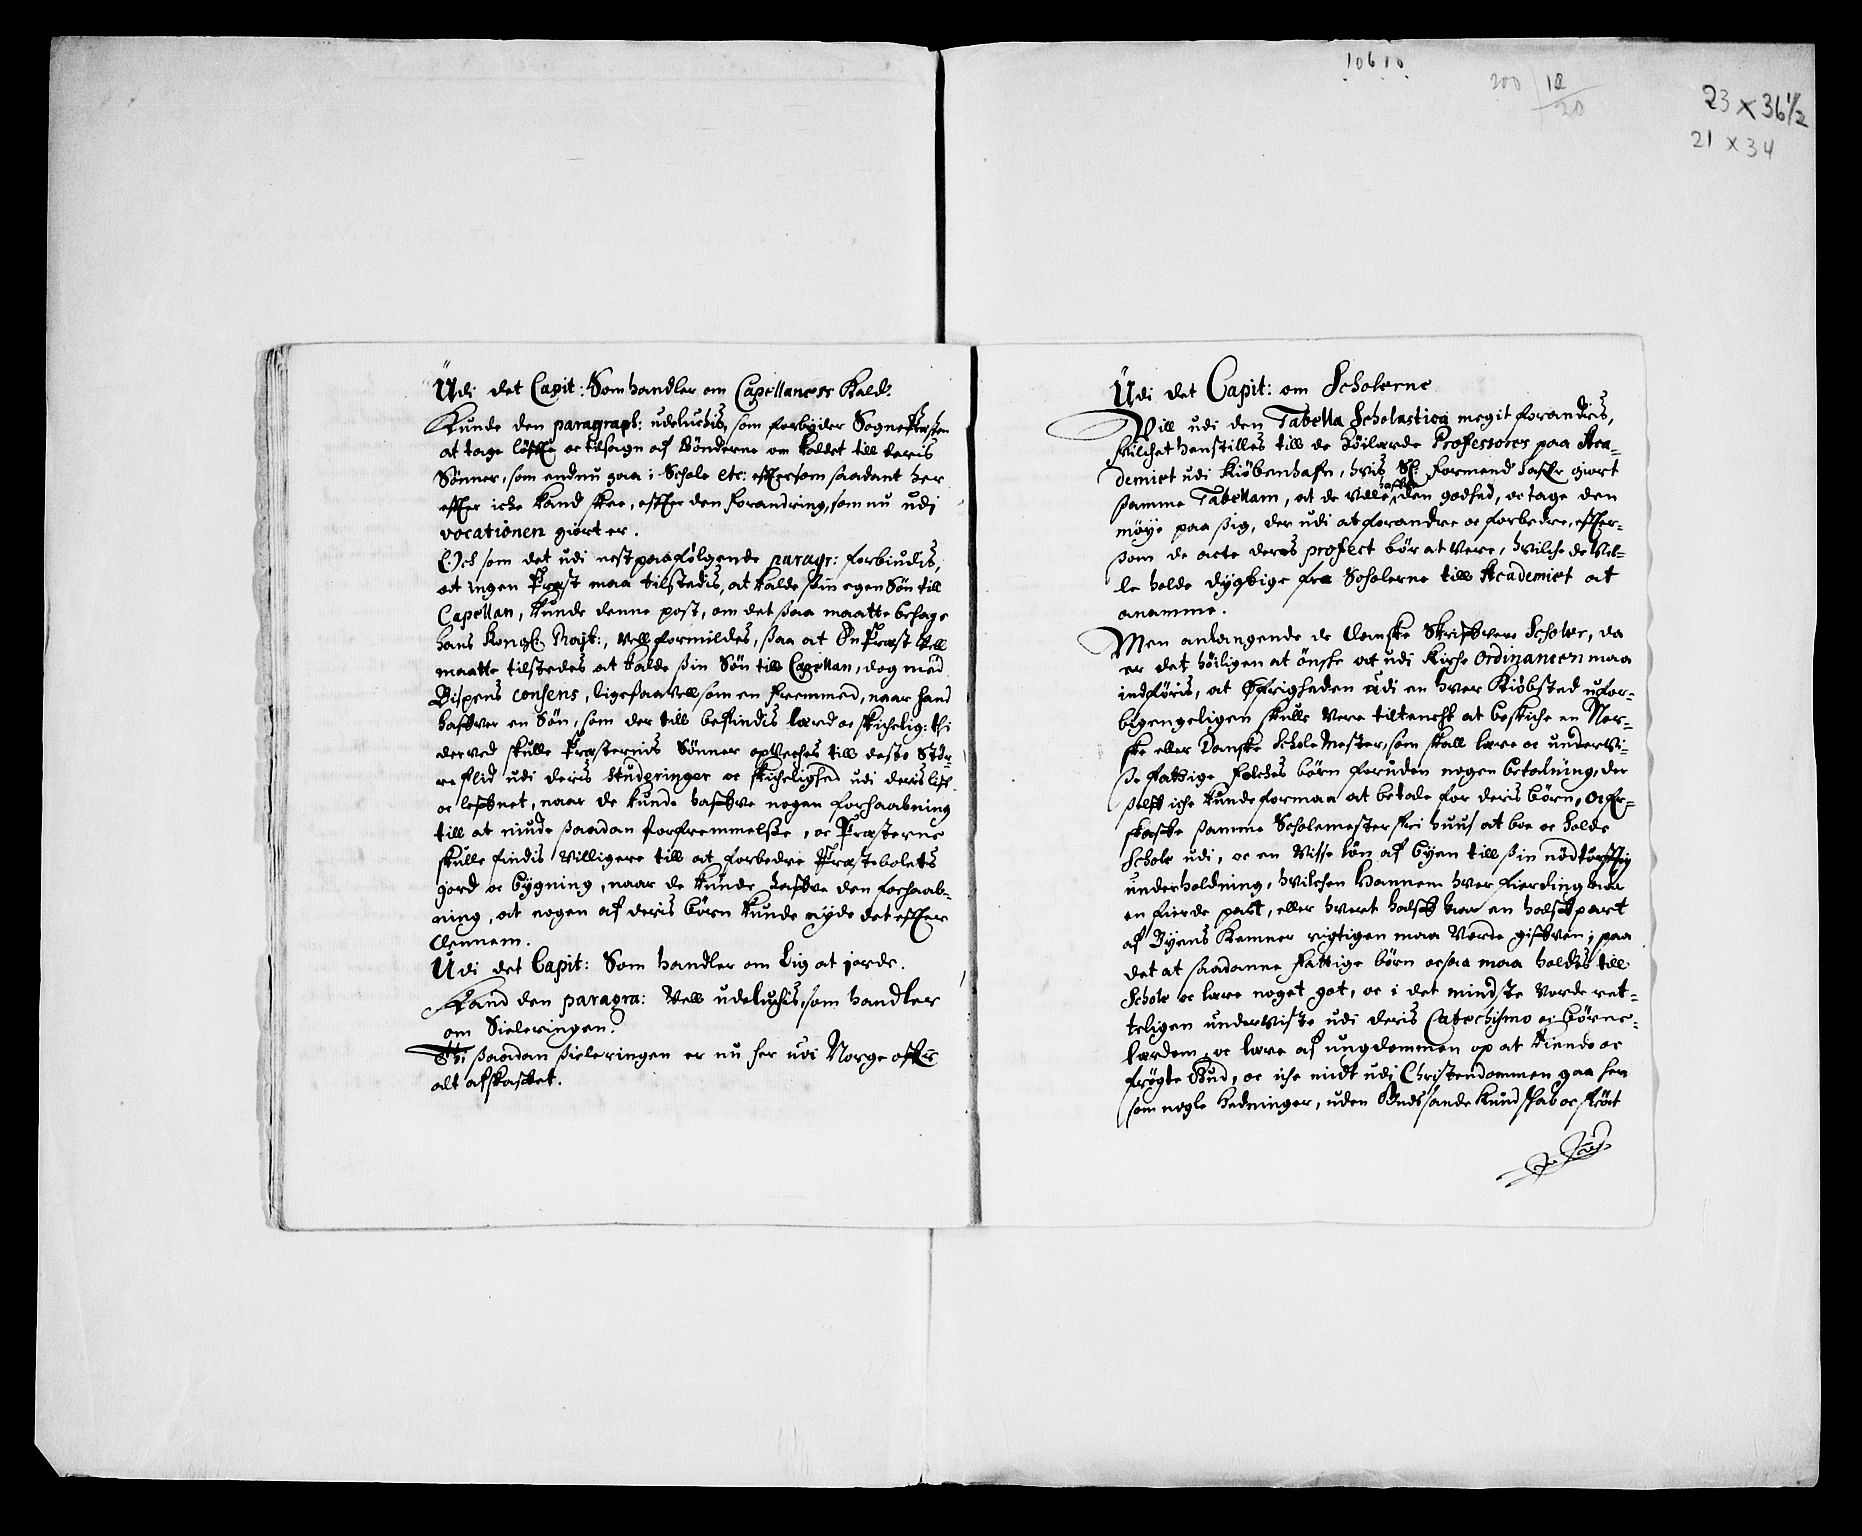 Udi det Capit: Som handler om Capellaners Kald.
Kunde den paragraph: udeluchis, som forbyder Sognepræsten
at tage løffte oc tilsagn af Bønderne om Kaldet till deris
Sønner, som endnu gaa i Schole etc: efftersom saadant her
effter iche kand skee, effter den forandring, som nu udj
vocationen giort er.
Och som det udi nest paafølgende paragr: forbiudis,
at ingen Præst maa tilstedis, at kalde sin egen Søn till
Capellan, kunde denne post, om det saa maatte behage
hans Kongl: Majt:, vell formildes, saa at En Præst vell
maatte tilstedes at kalde sin Søn till Capellan, dog med
Bispens consens, ligesaavell som en fremmed, naar hand
haffver en Søn, som der till befindis lærd oc skichelig: thi
derved skulle Præsternis Sønner opveches till deste Stør-
re flid udi deris studeringer oc skichelighed udi deris liff
oc leffnet, naar de kunde haffve nogen forhaabning
till at niude saadan forfremmelse, oc Præsterne
skulle findis villigere till at forbedre Præstebolets
gord oc bygning, naar de kunde haffve den forhaab-
ning, at nogen af deris børn kunde nyde det effter
dennem.
Udi det Capit: Som handler om Lig at jorde.
Kand den paragra: vell udeluchis, som handler
om Sieleringen.
Thi saadan sieleringen er nu her udi Norge offuer
alt afskaffet.
10610
200 12
20
23 x 36 1/2
21 x 34
Udi det Capit: om Scholerne
Will udi den Tabella Scholastica megit forandris,
huilchet henstilles till de höilærde Professores paa Aca-
demiet udi Kiöbenhafn, hvis Sl: Formend hafve giort
samme Tabellam, at de ville haffve den godhed, oc tage den
möye paa sig, der udi at forandre oc forbedre, effter-
som de acte deres profect bör at vere, hvilche de vil-
le holde dygtige fra Scholerne till Academiet at
anamme.
Men anlangende de danske Skriffvere Scholer, da
er det höiligen at önske at udi Kirke Ordinancen maa
indföris, at Öfrigheden udi en hver Kiöbsted ufor-
bigengeligen skulle vere tiltencht at beskiche en Nor-
ske eller Danske Schole Mester, som skall lære oc undervi-
se fattige Folches börn foruden nogen betalning, der
selff iche kunde formaa at betale for deris börn, oc for-
skaffe samme Scholemester frj huus at boe oc holde
Schole udi, oc en visse lön af byen till sin nödtörfftig
underholdning, hvilchen hannem hver fierding aar
en fierde part, eller hvert halfft aar en halff part
af Byens Kemner rigtigen maa vorde gifven; paa
det at saadanne fattige börn ocsaa maa holdes till
Schole oc lære noget got, oc i det mindste vorde ret-
teligen underviste udi deris Catechismo oc börne-
lærdom, oc lære af ungdommen op at kiende oc
frögte Gud, oc iche midt udi Christendommen gaa hen
som nogle hedninger, uden Guds sande kundskab oc fröct